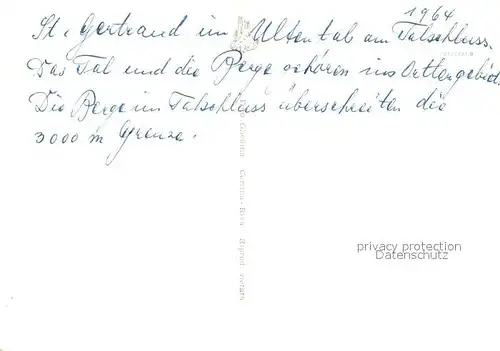 1964
St. Gertraud im Ultental am Talschluss.
Das Tal und die Berge gehören ins Ortlergebiet.
Die Berge im Talschluss überschreiten die
3000 m Grenze.
privacy protection
Datenschutz